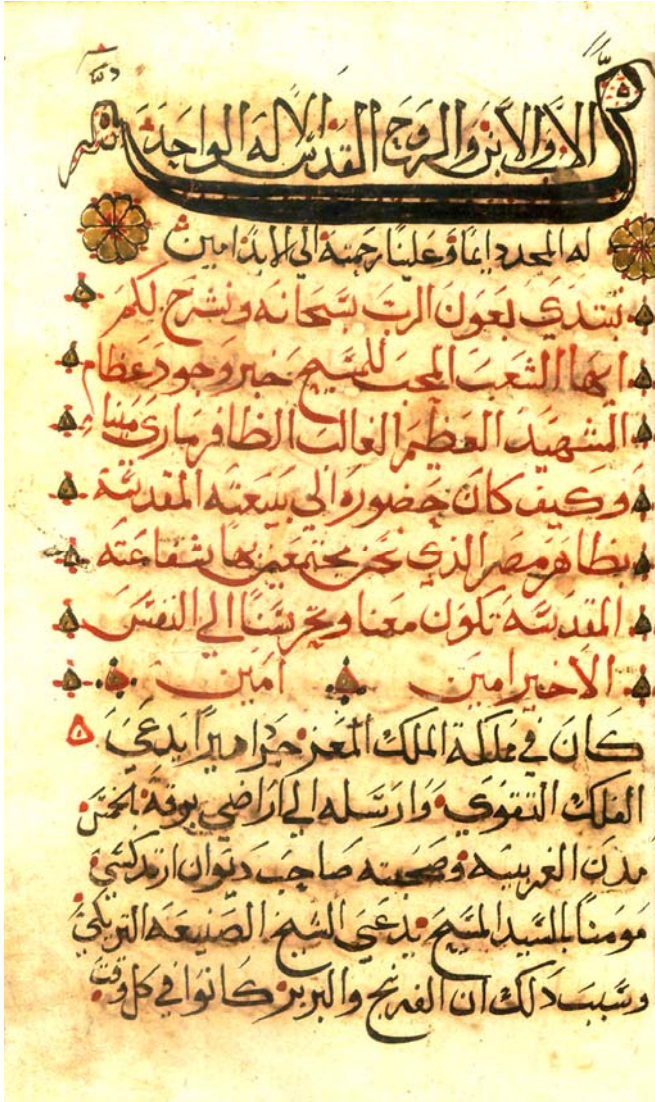 بسم الاب والابن والروح القدس الاله الواحد
له المجد دايما وعلينا رحمته الي الابد امين
نبتدي بعون الرب سبحانه ونشرح لكم
ايها الشعب المحب للمسيح خبر وجود عظام
الشهيد العظيم الغالب الظافر ماري مينا
وكيف كان حضوره الي بيعته المقدسة
بظاهر مصر الذي نحن مجتمعين بها شفاعته
المقدسه تكون معنا وتحرسنا الي النفس
الاخير امين امين
كان في مملكة الملك المعز اميرا يدعي
الفلك التقوي وارسله الي اراضي بوقة
مدن الغربيه وصحبته صاحب ديوان
مومنا بالسيد المسيح يدعي الشيخ الصنيعه
وسبب دلك ان الفرنج والبربر كانوا في كل وقت